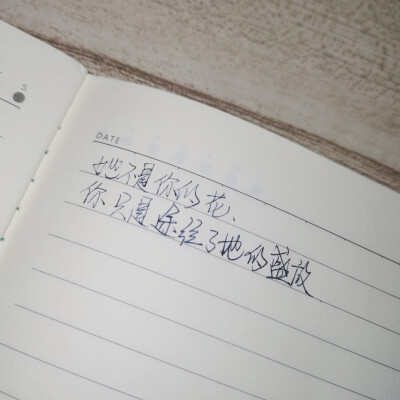 S
DATE
她不是你的花、
你只是途径了她的盛放